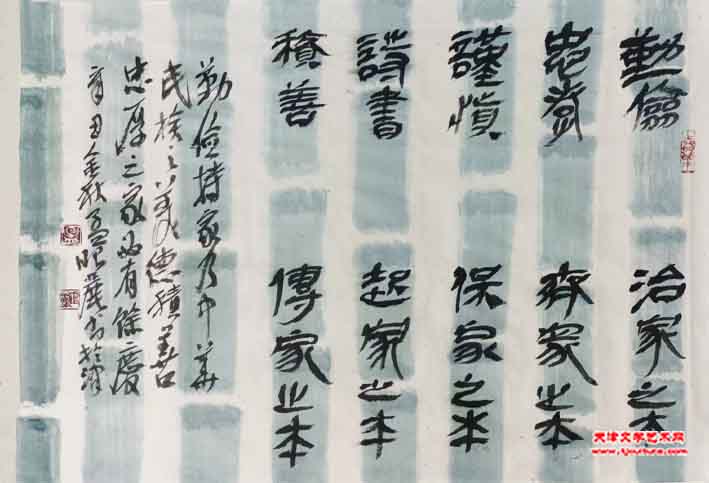 勤儉 治家之本
忠孝 齊家之本
謹慎 保家之本
詩書 起家之本
積善 傳家之本
勤俭持家乃中華
民族之美德積善
忠厚之家必有餘慶
辛丑金秋孟昭麗書於津
天津文学艺术网